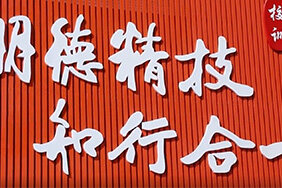 明德精技
知行合一
校训